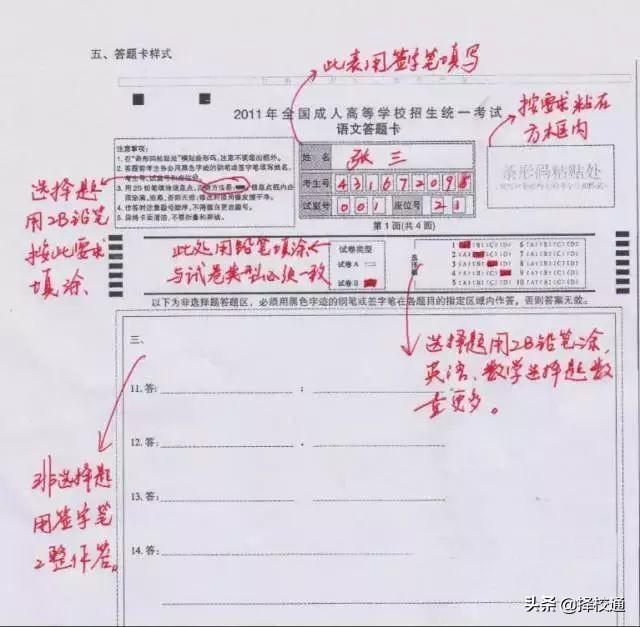 五、答题卡样式
此表用签字笔填写
2011年全国成人高等学校招生统一考试
语文答题卡
按要求粘在
方框内
注意事项：
1. 在"条形码粘贴处"横贴条形码，注意不要超出框外。
2. 答题前考生务必用黑色字迹的钢笔或签字笔填写姓名、
考生号、试室号和座位号。
3. 用2B铅笔填涂信息点，正确方法是：
5. 保持卡面清洁，不要折叠和弄破。
姓 名 张三
考生号 4 3 1 6 7 2 0 9 8
试室号 0 0 1 座位号 2 1
第1面(共4面)
条形码粘贴处
选择题
用2B铅笔
按此要求
填涂.
此处用铅笔填涂
与试卷类型必须一致
试卷类型
试卷 A
试卷 B
选择题
1 (B)(C)(D) 6 (A)(B)(C)(D)
2 (A) (C)(D) 7 (A)(B)(C)(D)
3 (A)(B) (D) 8 (A)(B)(C)(D)
4 (A)(B)(C) 9 (A)(B)(C)(D)
5 (A)(B)(C)(D) 10 (A)(B)(C)(D)
以下为非选择题答题区，必须用黑色字迹的钢笔或签字笔在各题目的指定区域内作答，否则答案无效。
三、
选择题用2B铅笔涂,
英语、数学选择题数
量更多。
11. 答： ；
12. 答： ；
13. 答： ；
14. 答：
非选择题
用签字笔
工整作答。
头条 @择校通